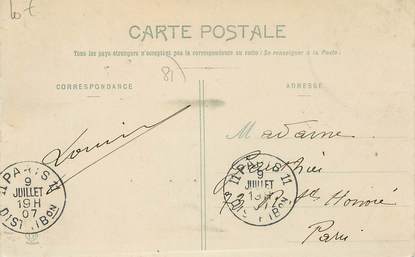 Lot
CARTE POSTALE
Tous les pays étrangers n'acceptent pas la correspondance au recto (Se renseigner à la Poste)
81)
CORRESPONDANCE
ADRESSE
Madame
Honoré
Paris
PARIS 11
9
JUILLET
19 H
07
DISTRIBON
PARIS 11
9
JUILLET
DISTRIBON